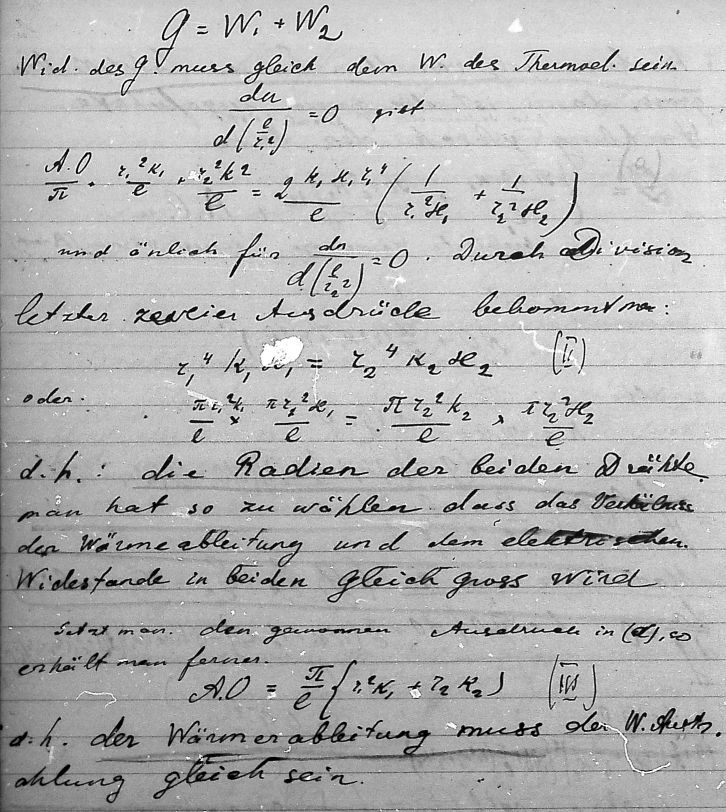 g = W₁ + W₂
Wid. des g. muss gleich dem W. des Thermoel. sein
du / d(e/r₁²) = 0 gibt
A.O/π · r₁²k₁/e + r₂²k2/e = 2 k₁ ϰ₁ r₁⁴/e (1/r₁²ϰ₁ + 1/r₂²ϰ₂)
und önlich für du / d(e/r₂²) = 0. Durch Division
letzter zweier Ausdrücke bekommt man:
r₁⁴ k₁ ϰ₁ = r₂⁴ k₂ ϰ₂ (II)
oder.
πr₁²k₁/e × πr₁²ϰ₁/e = πr₂²k₂/e × πr₂²ϰ₂/e
d.h.: die Radien der beiden Drähte
man hat so zu wählen dass das Verhältniss
der Wärmeableitung und dem elektrischen.
Widestande in beiden gleich gross wird
Setzt man. den gewonnen Ausdruck in (d), so
erhält man ferner.
A.O = π/e {r₁²k₁ + r₂ k₂} (III)
d.h. der Wärmerableitung muss der W. Austr.
ahlung gleich sein.